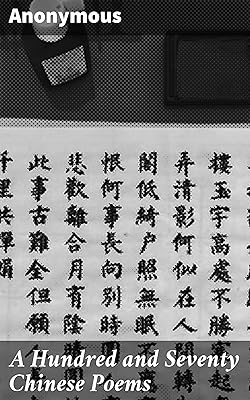 Anonymous
樓玉宇高處不勝
弄清影何似在人間轉
閣低綺戶照無眠不
恨何事長向別時
悲歡離合月有陰晴
此事古難全但願
千里共嬋娟
A Hundred and Seventy
Chinese Poems